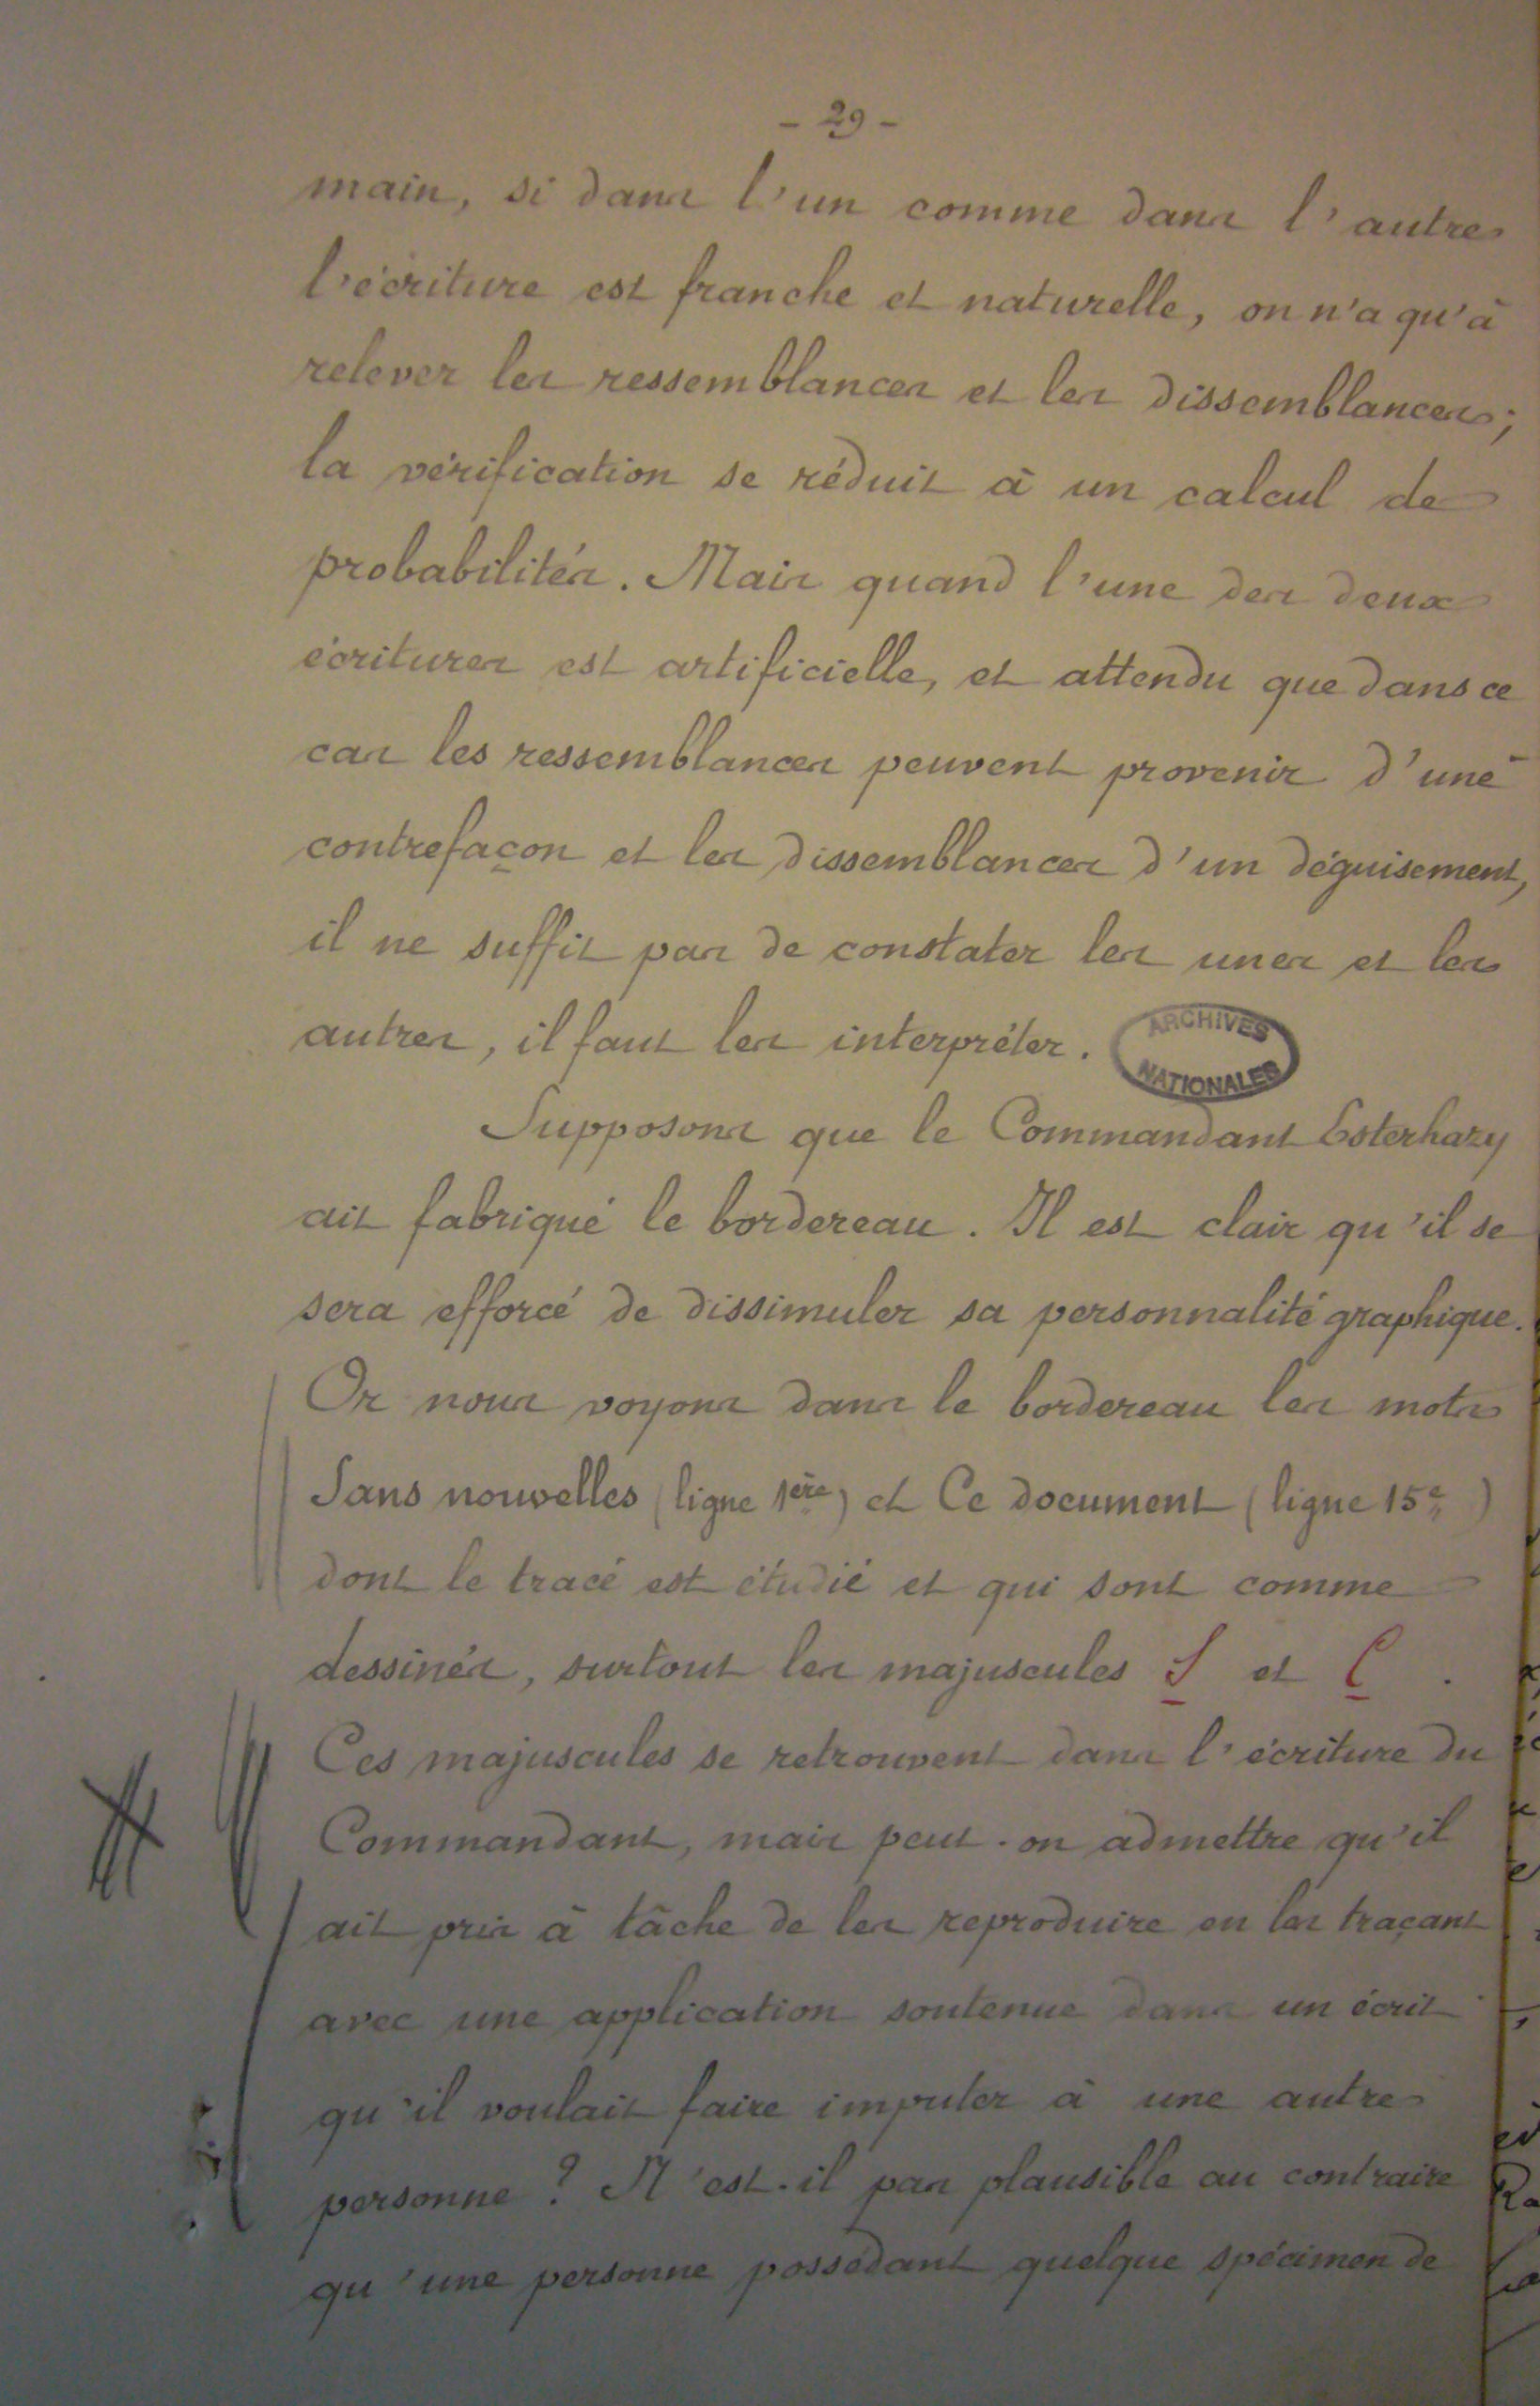 - 29 -
main, si dans l'un comme dans l'autre
l'écriture est franche et naturelle, on n'a qu'à
relever les ressemblances et les dissemblances;
la vérification se réduit à un calcul de
probabilités. Mais quand l'une des deux
écritures est artificielle, et attendu que dans ce
cas les ressemblances peuvent provenir d'une
contrefaçon et les dissemblances d'un déguisement,
il ne suffit pas de constater les unes et les
autres, il faut les interpréter.
ARCHIVES
NATIONALES
Supposons que le Commandant Esterhazy
ait fabriqué le bordereau. Il est clair qu'il se
sera efforcé de dissimuler sa personnalité graphique.
Or nous voyons dans le bordereau les mots
Sans nouvelles (ligne 1ère) et Ce document (ligne 15e)
dont le tracé est étudié et qui sont comme
dessinés, surtout les majuscules S et C.
Ces majuscules se retrouvent dans l'écriture du
Commandant, mais peut-on admettre qu'il
ait pris à tâche de les reproduire en les traçant
avec une application soutenue dans un écrit
qu'il voulait faire imputer à une autre
personne ? N'est-il pas plausible au contraire
qu'une personne possédant quelque spécimen de